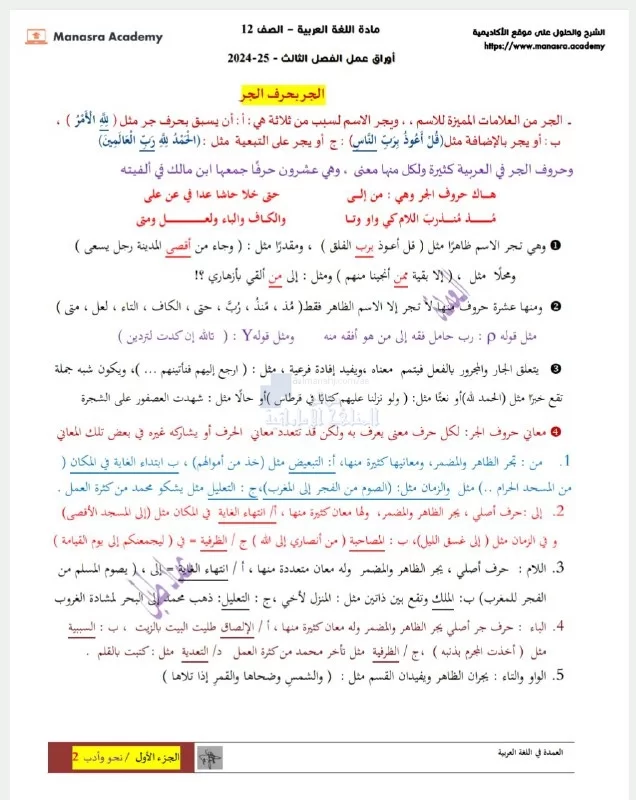 الشرح والحلول على موقع الأكاديمية
https://www.manasra.academy
مادة اللغة العربية – الصف 12
أوراق عمل الفصل الثالث - 25-2024
Manasra Academy
الجر بحرف الجر
ـ الجر من العلامات المميزة للاسم ، ، ويجر الاسم لسبب من ثلاثة هي: أ : أن يسبق بحرف جر مثل ( لِلَّهِ الْأَمْرُ ) ،
ب : أو يجر بالإضافة مثل (قُلْ أَعُوذُ بِرَبِّ النَّاسِ) : ج أو يجر على التبعية مثل : (الْحَمْدُ لِلَّهِ رَبِّ الْعَالَمِينَ)
وحروف الجر في العربية كثيرة ولكل منها معنى ، وهي عشرون حرفًا جمعها ابن مالك في ألفيته
هـاك حروف الجر وهي : من إلـى حتى خلا حاشا عدا في عن على
مُـــذ مُنـذربَ اللام كي واو وتـا والكاف والباء ولعـــــل ومتى
❶ وهي تجر الاسم ظاهرًا مثل ( قل أعوذ برب الفلق ) ، ومقدرًا مثل : ( وجاء من أقصى المدينة رجل يسعى )
ومحلًا مثل ، ( إلا بقية ممن أنجينا منهم ) ومثل : إلى من ألقي بأزهاري ؟!
❷ ومنها عشرة حروف فيها لا تجر إلا الاسم الظاهر فقط( مُذ ، مُنذُ ، رُبَّ ، حتى ، الكاف ، التاء ، لعل ، متى )
مثل قوله ρ : رب حامل فقه إلى من هو أفقه منه ومثل قوله Y : ( تالله إن كدت لتردين )
❸ يتعلق الجار والمجرور بالفعل فيتمم معناه ،ويفيد إفادة فرعية ، مثل : ( ارجع إليهم فنأتينهم ... )، ويكون شبه جملة
تقع خبرًا مثل (الحمد لله)أو نعتًا مثل: ( ولو نزلنا عليهم كتابًا في قرطاس )أو حالًا مثل : شهدت العصفور على الشجرة
❹ معاني حروف الجر: لكل حرف معنى يعرف به ولكن قد تتعدد معاني الحرف أو يشاركه غيره في بعض تلك المعاني
1. من : تجر الظاهر والمضمر، ومعانيها كثيرة منها، أ: التبعيض مثل (خذ من أموالهم) ، ب ابتداء الغاية في المكان (
من المسجد الحرام ..) مثل والزمان مثل: (الصوم من الفجر إلى المغرب)،ج : التعليل مثل يشكو محمد من كثرة العمل .
2. إلى :حرف أصلي ، يجر الظاهر والمضمر، ولها معان كثيرة منها ، أ/ انتهاء الغاية في المكان مثل (إلى المسجد الأقصى)
و في الزمان مثل ( إلى غسق الليل)، ب : المصاحبة ( من أنصاري إلى الله ) ج / الظرفية = في ( ليجمعنكم إلى يوم القيامة )
3. اللام : حرف أصلي ، يجر الظاهر والمضمر وله معان متعددة منها ، أ / انتهاء الغاية = إلى ، ( يصوم المسلم من
الفجر للمغرب) ب: الملك وتقع بين ذاتين مثل : المنزل لأخي ،ج : التعليل: ذهب محمد إلى البحر لمشادة الغروب
4. الباء : حرف جر أصلي يجر الظاهر والمضمر وله معان كثيرة منها ، أ / الإلصاق طليت البيت بالزيت ، ب : السببية
مثل ( أخذت المجرم بذنبه ) ،ج / الظرفية مثل تأخر محمد من كثرة العمل د/ التعدية مثل : كتبت بالقلم .
5. الواو والتاء : يجران الظاهر ويفيدان القسم مثل : ( والشمسِ وضحاها والقمرِ إذا تلاها )
العمدة في اللغة العربية
الجزء الأول / نحو وأدب 2